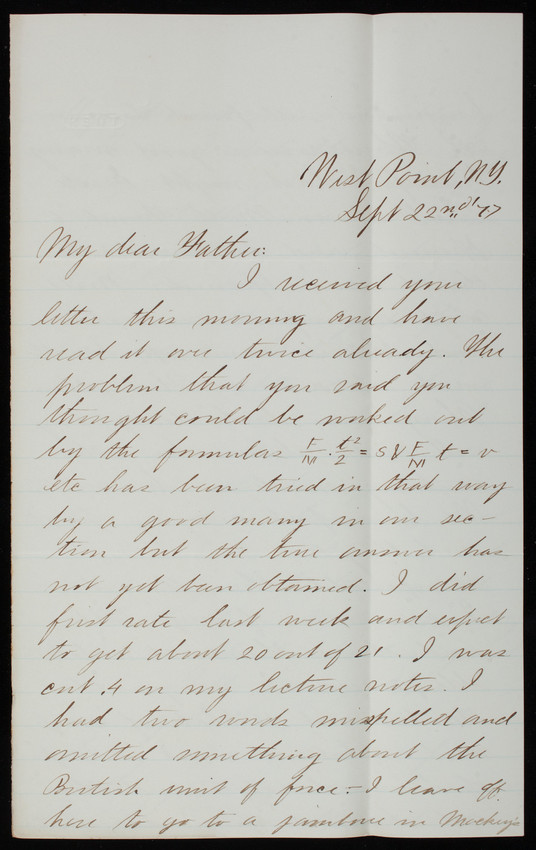 West Point, N.Y.
Sept 22nd, '77
My dear Father:
I received your
letter this morning and have
read it over twice already. The
problem that you said you
thought could be worked out
by the formulas F/M · t²/2 = s & F/M t = v
etc has been tried in that way
by a good many in our sec-
tion but the true answer has
not yet been obtained. I did
first rate last week and expect
to get about 20 out of 21. I was
cut .4 on my lecture notes. I
had two words misspelled and
omitted something about the
British unit of force – I leave off
here to go to a jamboree in